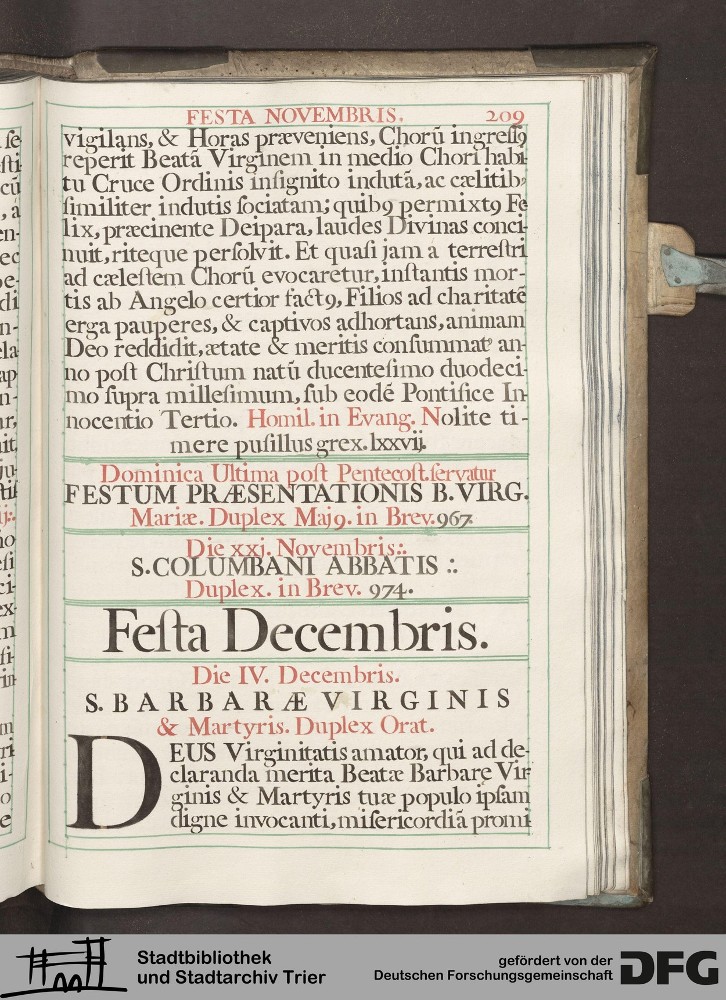 FESTA NOVEMBRIS. 209
vigilans, & Horas præveniens, Chorū ingreſſꝰ
reperit Beatā Virginem in medio Chori habi-
tu Cruce Ordinis inſignito indutā, ac cælitibꝰ
ſimiliter indutis ſociatam; quibꝰ permixtꝰ Fe
lix, præcinente Deipara, laudes Divinas conci-
nuit, riteque perſolvit. Et quaſi jam a terreſtri
ad cæleſtem Chorū evocaretur, inſtantis mor-
tis ab Angelo certior factꝰ, Filios ad charitatē
erga pauperes, & captivos adhortans, animam
Deo reddidit, ætate & meritis conſummatꝰ an-
no poſt Chriſtum natū ducenteſimo duodeci-
mo ſupra milleſimum, ſub eodē Pontifice In
nocentio Tertio. Homil. in Evang. Nolite ti-
mere puſillus grex. lxxvij.
Dominica Ultima poſt Pentecoſt. ſervatur
FESTUM PRÆSENTATIONIS B. VIRG.
Mariæ. Duplex Majꝰ. in Brev. 967.
Die xxj. Novembris:.
S. COLUMBANI ABBATIS :.
Duplex. in Brev. 974.
Feſta Decembris.
Die IV. Decembris.
S. BARBARÆ VIRGINIS
& Martyris. Duplex Orat.
DEUS Virginitatis amator, qui ad de-
claranda merita Beatæ Barbarę Vir-
ginis & Martyris tuæ populo ipſam
digne invocanti, miſericordiā promi-
Stadtbibliothek
und Stadtarchiv Trier
gefördert von der
Deutschen Forschungsgemeinschaft
DFG